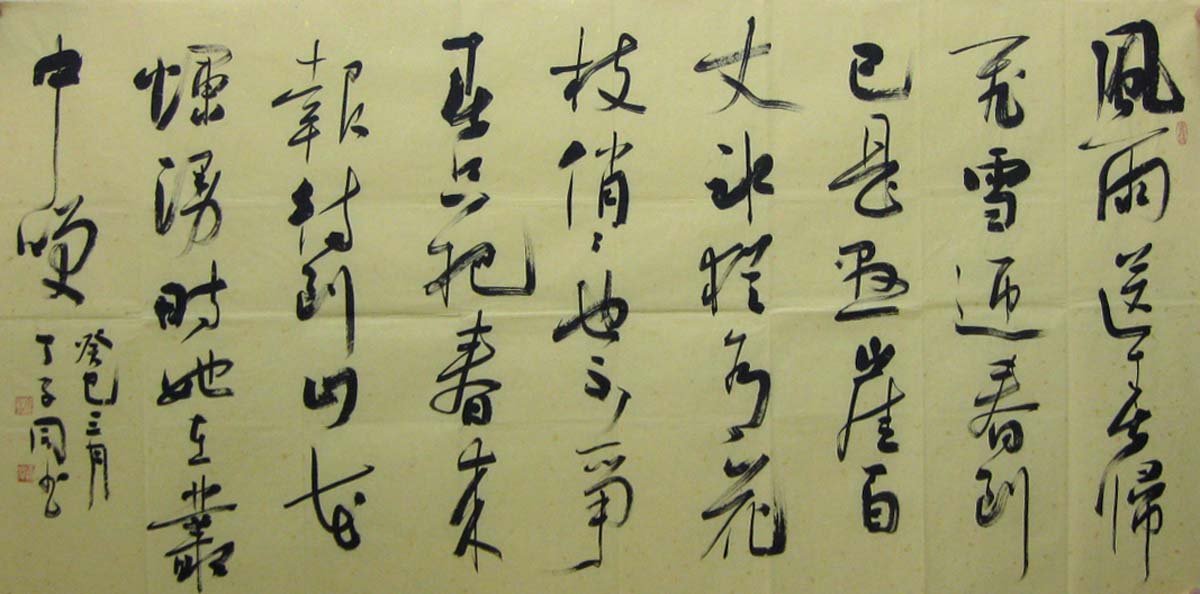 風雨送春歸
飛雪迎春到
已是懸崖百
丈冰猶有花
枝俏々也不爭
春只把春來
報待到山花
爛漫時她在叢
中笑
癸巳三月
丁子同书